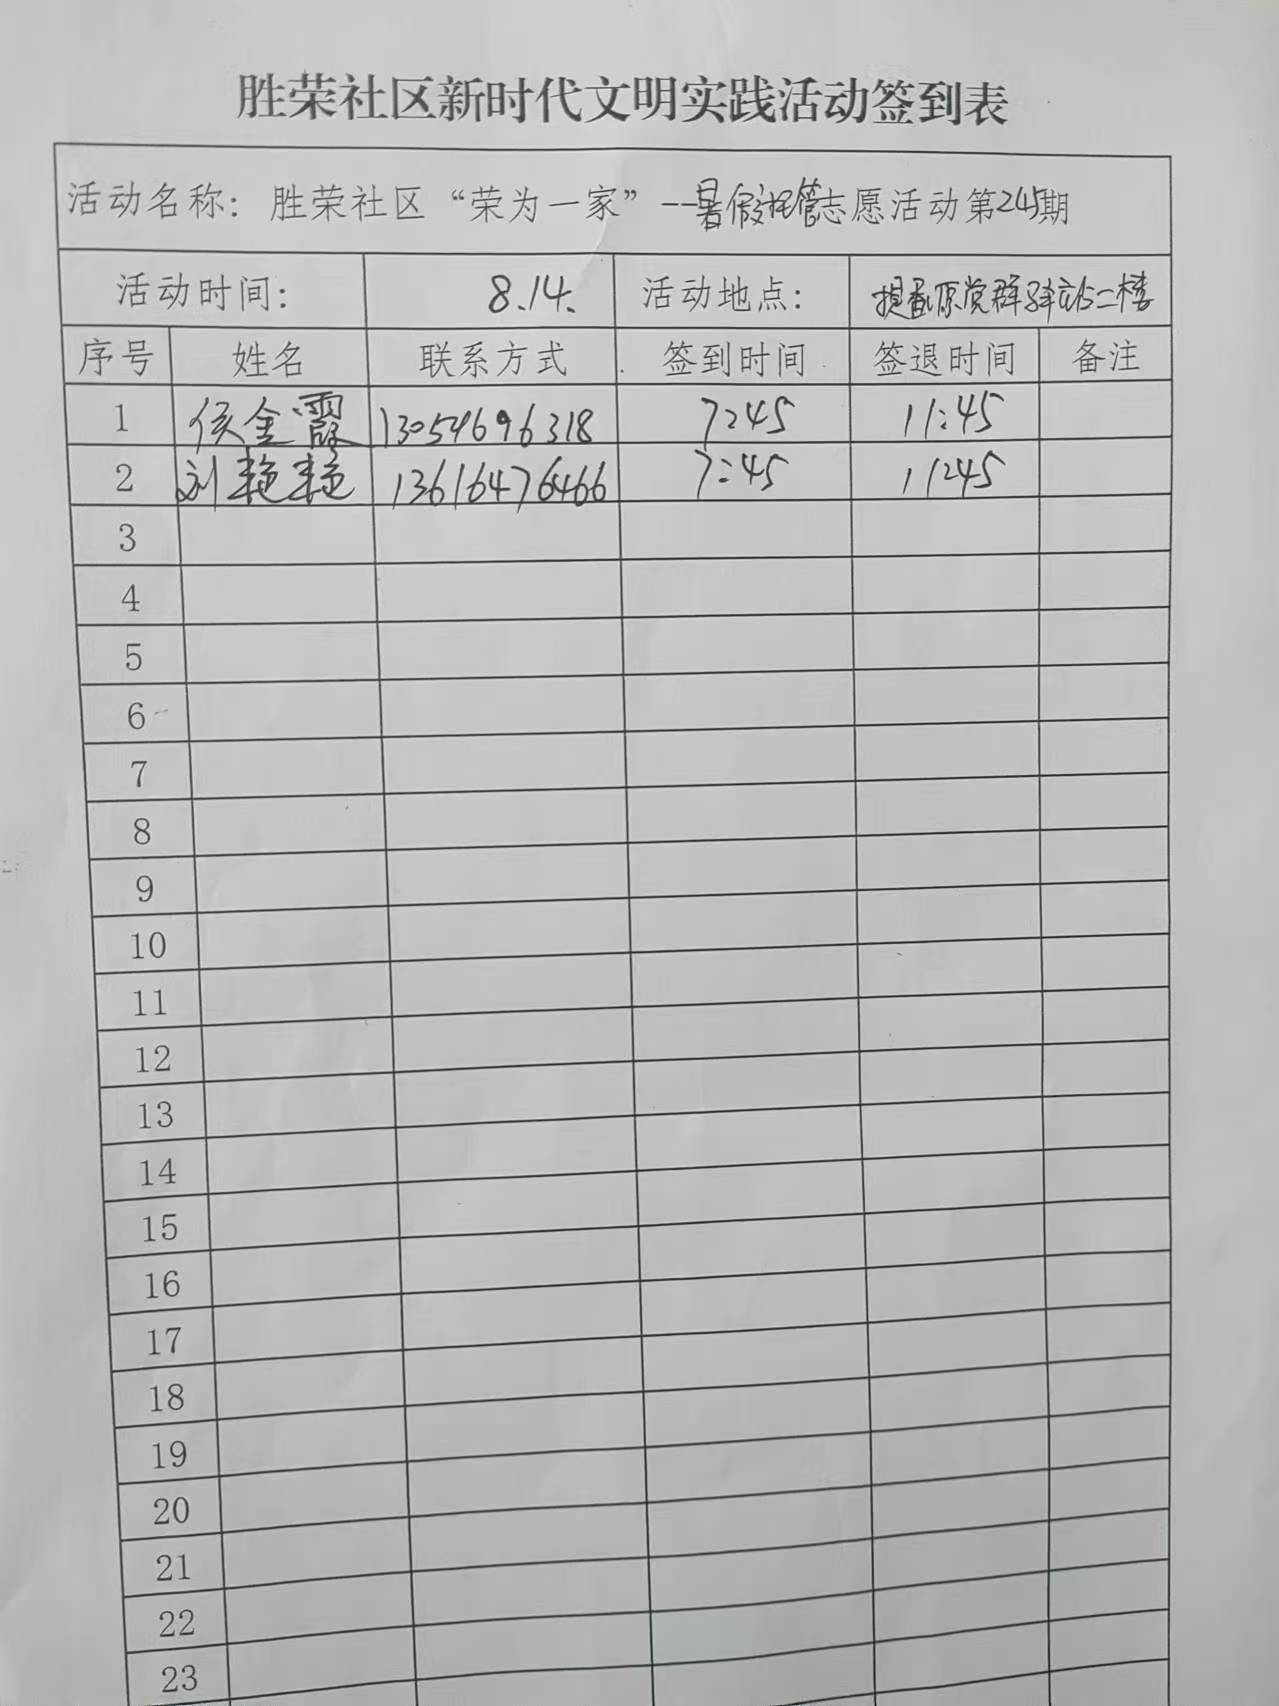 胜荣社区新时代文明实践活动签到表
活动名称：胜荣社区“荣为一家”--暑假托管志愿活动第245期
活动时间： 8.14. 活动地点： 党群驿站二楼
序号 姓名 联系方式 签到时间 签退时间 备注
1 侯金霞 13054696318 7:45 11:45
2 刘艳艳 13616476466 7:45 11:45
3
4
5
6
7
8
9
10
11
12
13
14
15
16
17
18
19
20
21
22
23